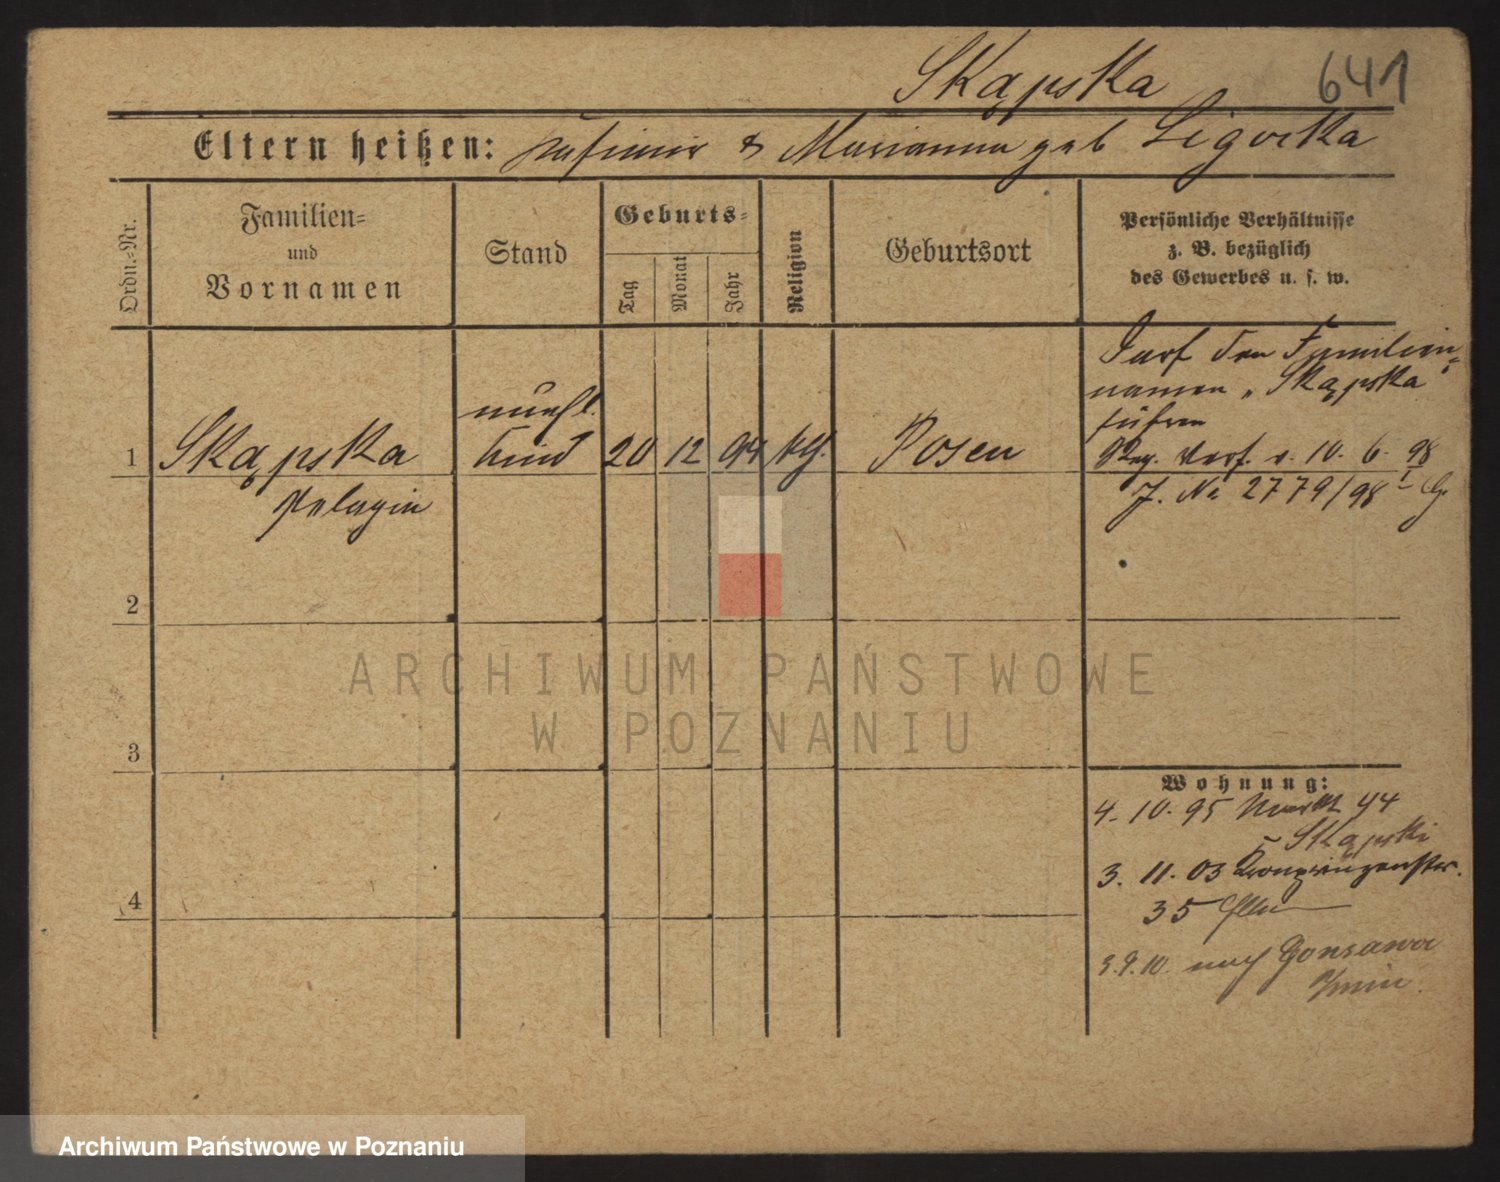 Skąpska 641
Eltern heißen: Kasimir & Marianna geb Ligocka
Ordn.-Nr.
Familien-
und
Vornamen
Stand
Geburts-
Tag
Monat
Jahr
Religion
Geburtsort
Persönliche Verhältnisse
z. B. bezüglich
des Gewerbes u. s. w.
Darf den Familien-
namen „Skąpska"
führen
Reg. Verf. v. 10. 6. 98
J. No 2779/98 I G
unehl.
1 Skąpska Kind 20 12 94 kth. Posen
Pelagia
2
3
4
Wohnung:
4. 10. 95 Markt 44
Skąpski
3. 11. 03 Kronprinzenstr.
35
3.9.10. nach Gonsawa
Znin.
ARCHIWUM PAŃSTWOWE
W POZNANIU
Archiwum Państwowe w Poznaniu